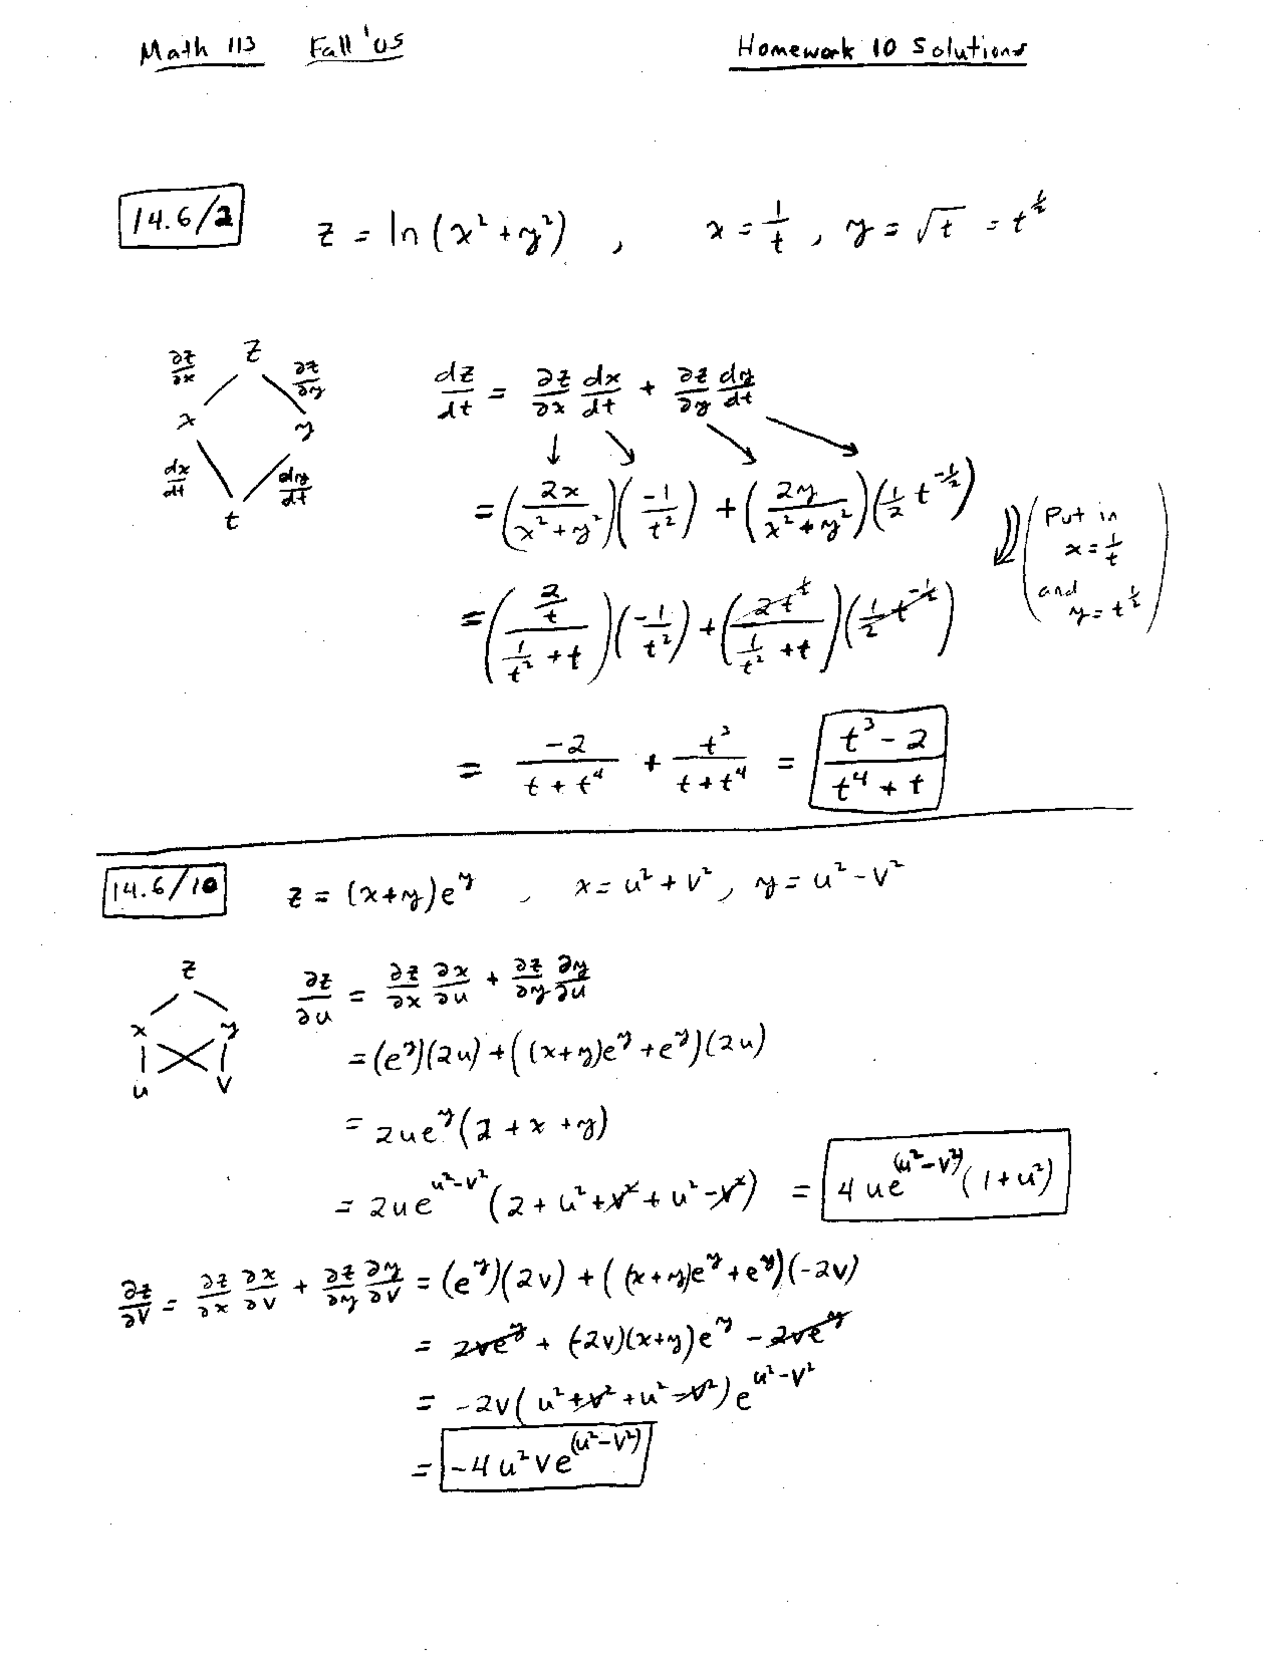 Math 113 Fall '05 Homework 10 Solutions
14.6/2 z = ln(x² + y²) , x = 1/t , y = √t = t^(1/2)
z
∂z/∂x ∂z/∂y
x y
dx/dt dy/dt
t
dz/dt = ∂z/∂x dx/dt + ∂z/∂y dy/dt
= (2x/(x² + y²))(-1/t²) + (2y/(x² + y²))(1/2 t^(-1/2))
(Put in
x = 1/t
and
y = t^(1/2))
= ((2/t)/(1/t² + t))(-1/t²) + (2t^(1/2)/(1/t² + t))(1/2 t^(-1/2))
= -2/(t + t⁴) + t³/(t + t⁴) = (t³ - 2)/(t⁴ + t)
14.6/10 z = (x+y)e^y , x = u² + v² , y = u² - v²
z
x y
u v
∂z/∂u = ∂z/∂x ∂x/∂u + ∂z/∂y ∂y/∂u
= (e^y)(2u) + ((x+y)e^y + e^y)(2u)
= 2ue^y(2 + x + y)
= 2ue^(u²-v²)(2 + u² + v² + u² - v²) = 4ue^(u²-v²)(1+u²)
∂z/∂v = ∂z/∂x ∂x/∂v + ∂z/∂y ∂y/∂v = (e^y)(2v) + ((x+y)e^y + e^y)(-2v)
= 2ve^y + (-2v)(x+y)e^y - 2ve^y
= -2v(u² + v² + u² - v²)e^(u²-v²)
= -4u²ve^(u²-v²)